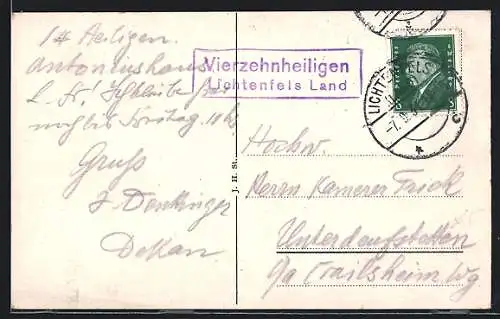 14 Heiligen.
Antoniushaus
L. Hr.
Freitag
Gruß
Denkinger
Dekan
Vierzehnheiligen
Lichtenfels Land
LICHTENFELS
J. H. St.
Hochw.
Herrn Kamerer Frick
Unterdeufstetten
p/a Crailsheim Wg